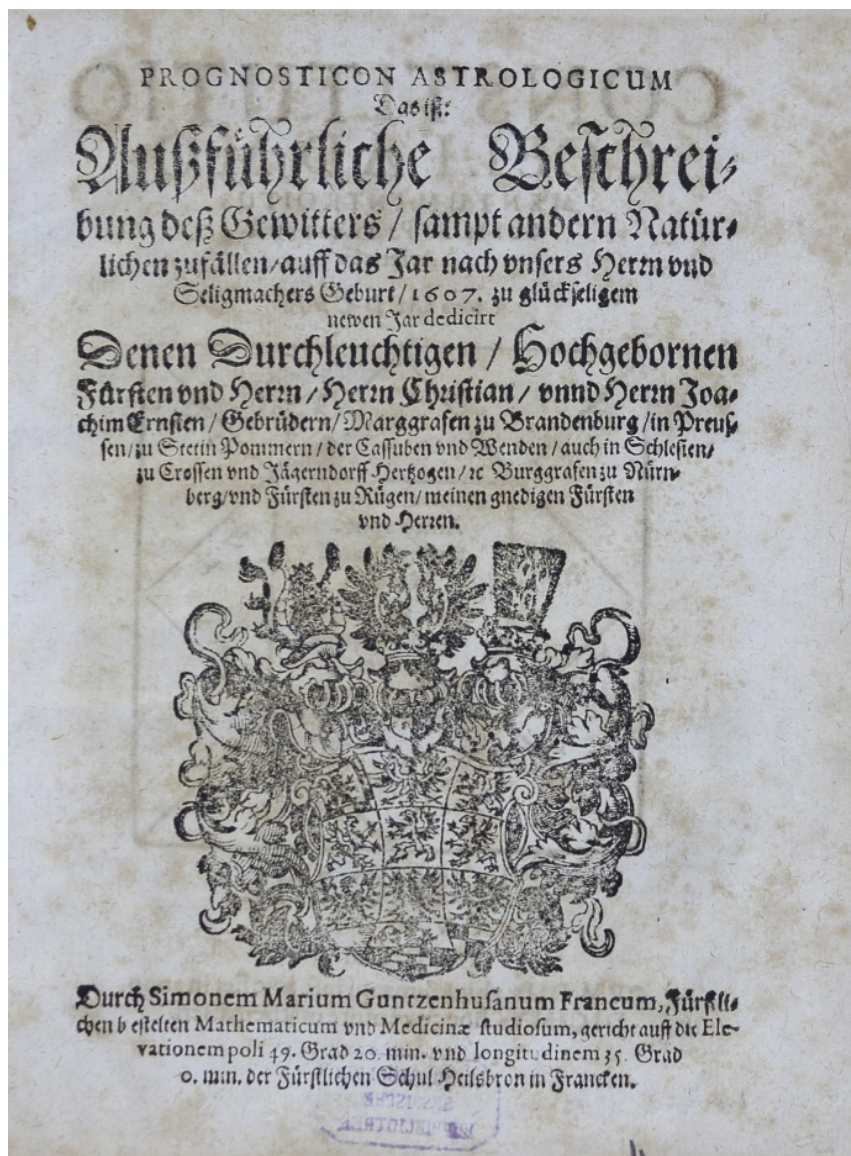 PROGNOSTICON ASTROLOGICUM
Das iſt:
Außfuͤhrliche Beſchrei⸗
bung deß Gewitters / ſampt andern Natuͤr⸗
lichen zufaͤllen / auff das Jar nach vnſers Herrn vnd
Seligmachers Geburt / 1607. zu gluͤckſeligem
newen Jar dedicirt
Denen Durchleuchtigen / Hochgebornen
Fuͤrſten vnd Herrn / Herrn Chriſtian / vnnd Herrn Joa⸗
chim Ernſten / Gebruͤdern / Marggrafen zu Brandenburg / in Preuſ⸗
ſen / zu Stetin Pommern / der Caſſuben vnd Wenden / auch in Schleſien /
zu Croſſen vnd Jaͤgerndorff Hertzogen / ꝛc Burggrafen zu Nuͤrn⸗
berg / vnd Fuͤrſten zu Ruͤgen / meinen gnedigen Fuͤrſten
vnd Herren.
Durch Simonem Marium Guntzenhuſanum Francum, Fuͤrſtli⸗
chen beſtelten Mathematicum vnd Medicinæ ſtudioſum, gericht auff die Ele-
vationem poli 49. Grad 20. min. vnd longitudinem 35. Grad
0. min. der Fuͤrſtlichen Schul Heilsbron in Francken.